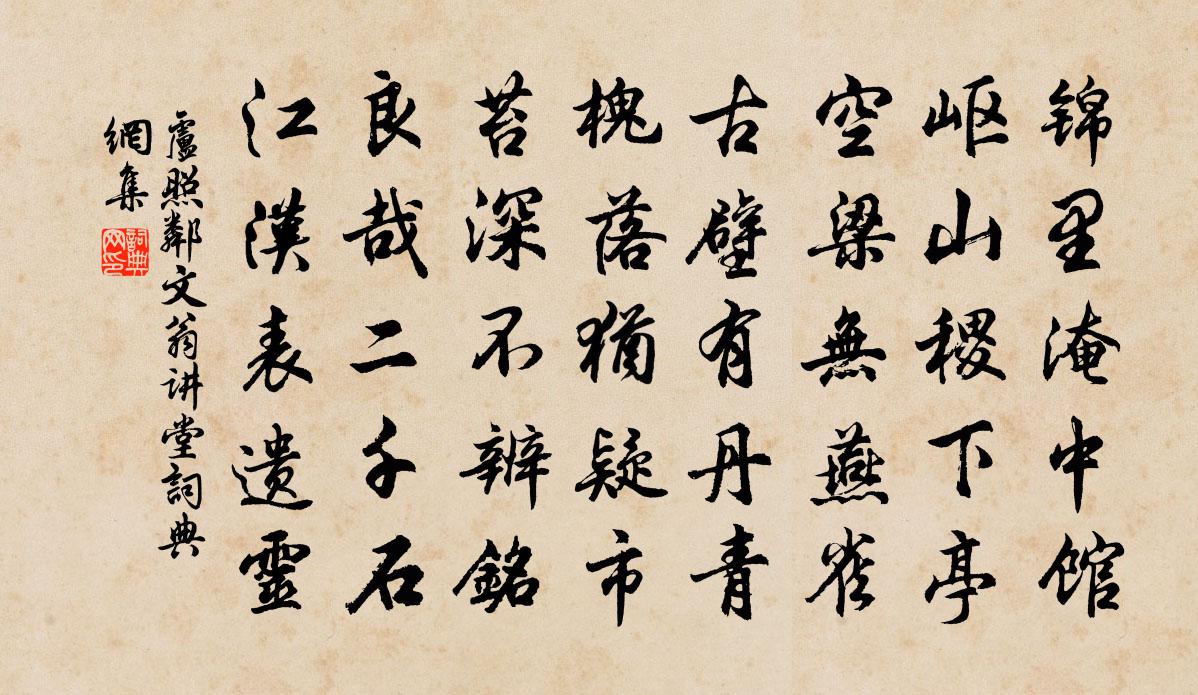 锦里淹中馆
岖山稷下亭
空梁無燕雀
古壁有丹青
槐落猶疑市
苔深不辨銘
良哉二千石
江漢表遗靈
盧照鄰文翁讲堂詞典
網集
詞典网印